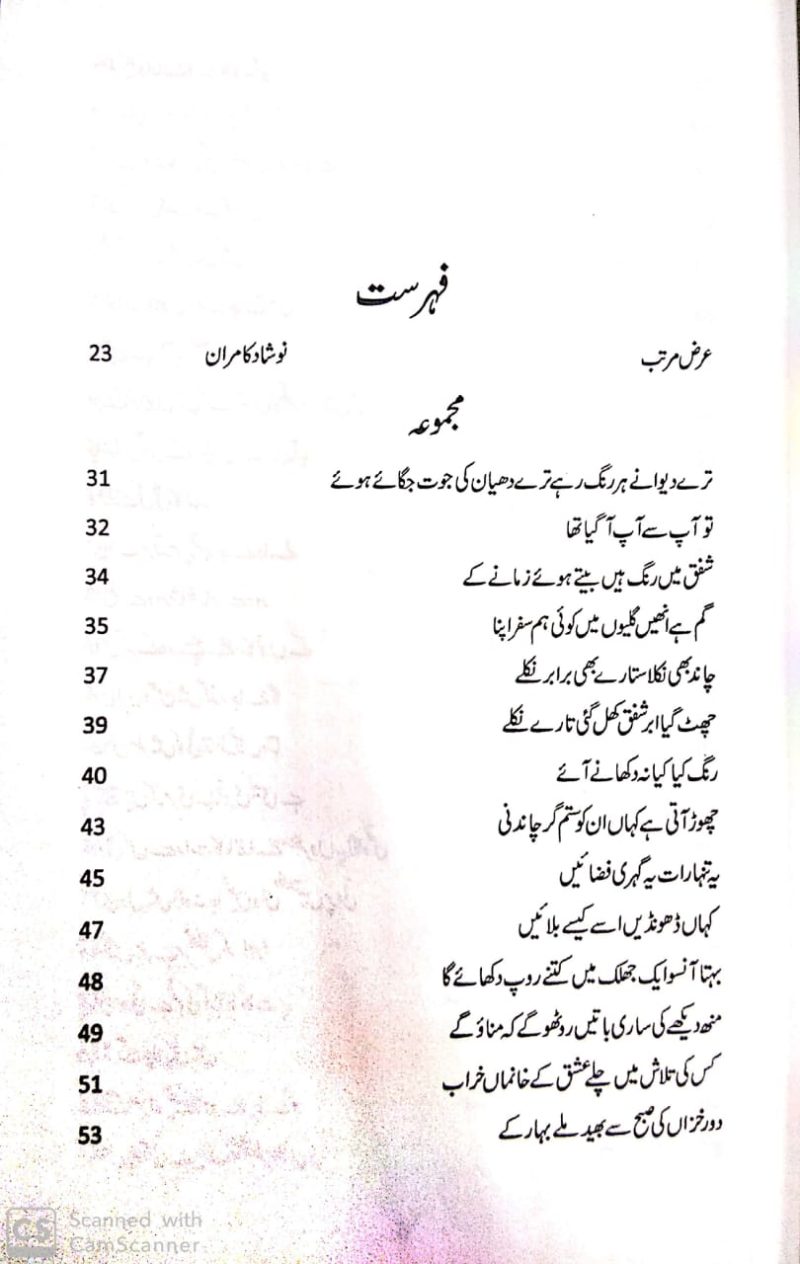 فہرست
عرض مرتب نوشاد کامران 23
مجموعہ
ترے دیوانے ہر رنگ رہے ترے دھیان کی جوت جگائے ہوئے 31
تو آپ سے آپ آ گیا تھا 32
شفق میں رنگ ہیں بیتے ہوئے زمانے کے 34
گم ہے انھیں گلیوں میں کوئی ہم سفر اپنا 35
چاند بھی نکلا ستارے بھی برابر نکلے 37
چھٹ گیا ابر شفق کھل گئی تارے نکلے 39
رنگ کیا کیا نہ دکھانے آئے 40
چھوڑ آتی ہے کہاں ان کو ستم گر چاندنی 43
یہ تنہا رات یہ گہری فضائیں 45
کہاں ڈھونڈیں اسے کیسے بلائیں 47
بہتا آنسو ایک جھلک میں کتنے روپ دکھائے گا 48
منھ دیکھے کی ساری باتیں روٹھو گے کہ مناؤ گے 49
کس کی تلاش میں چلے عشق کے خانماں خراب 51
دور خزاں کی صبح سے بھید ملے بہار کے 53
CS Scanned with
CamScanner